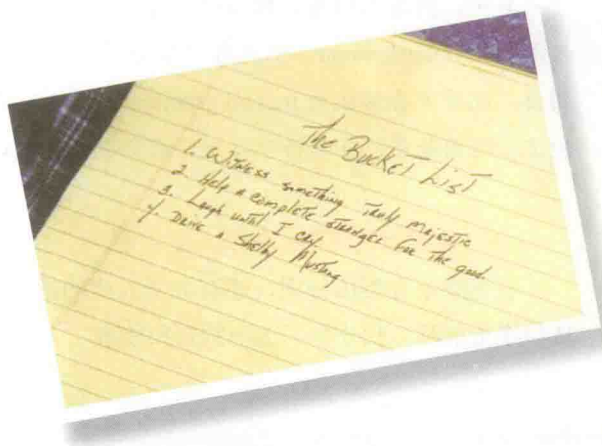 The Bucket List
1. Witness something truly majestic
2. Help a complete stranger for the good.
3. Laugh until I cry.
4. Drive a Shelby Mustang